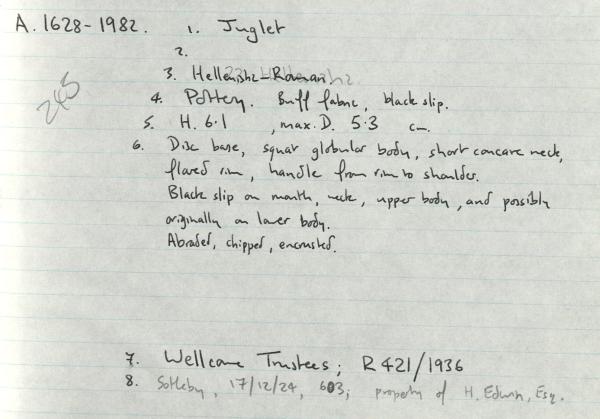 A. 1628-1982. 1. Juglet
2.
245
3. Hellenistic-Roman.
4. Pottery. Buff fabric, black slip.
5. H. 6.1 , max. D. 5.3 cm.
6. Disc base, squat globular body, short concave neck,
flared rim, handle from rim to shoulder.
Black slip on mouth, neck, upper body, and possibly
originally on lower body.
Abraded, chipped, encrusted.
7. Wellcome Trustees; R 421/1936
8. Sotheby, 17/12/24, 603; property of H. Edwin, Esq.